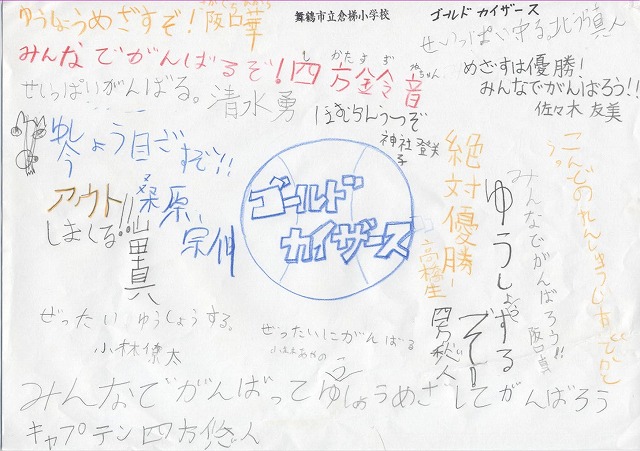 ゆうしょうめざすぞ!阪口華
舞鶴市立倉梯小学校
ゴールド カイザース
せいっぱい守る。北
真人
みんなでがんばるぞ!四方鈴音
かた すず
ちゃん
めざすは優勝!
みんなでがんばろう!!
佐々木 友美
せいっぱいがんばる。清水勇
ほむらんうつぞ
神社 登米
子
ゆうしょう目ざすぞ!!
今
アウト!!
しまくる!!
桑原、
宗伸
山里真
ゴールド
カイザース
絶対優勝!
高橋生
ゆうしょうするぞー!!
四方悠人
みんなでがんばろう!!
阪口真
ぜったい ゆうしょうする。
小林僚太
ぜったいにがんばる
小林あやの
みんなでがんばってゆうしょうめざしてがんばろう
キャプテン四方悠人